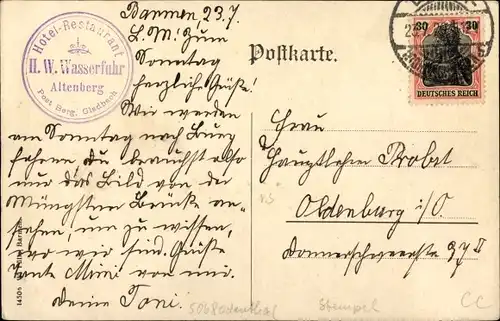 Hotel-Restaurant
H. W. Wasserfuhr
Altenberg
Post Berg. Gladbach
Barmen 23.7.
L. M.! Zum
Sonntag
herzliche Grüße!
Wir werden
am Sonntag nach Burg
fahren du brauchst also
nur das Bild von der
Müngstener Brücke an-
sehen, um zu wissen,
wo wir sind. Grüße
Tante Mimi von mir.
Deine Toni.
Postkarte.
30 30
DEUTSCHES REICH
Frau
Hauptlehrer Probst
Oldenburg i/O.
Donnerschweerstr. 97 II
14506
50680denthal
Stempel
CC